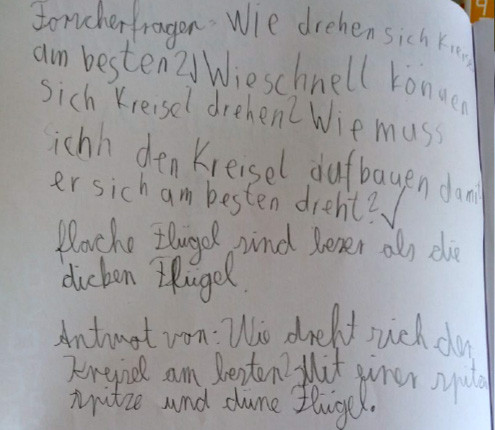 Forscherfragen: Wie drehen sich Kreisel
am besten?√ Wie schnell können
sich Kreisel drehen? Wie muss
ichh den Kreisel aufbauen damit
er sich am besten dreht?√
flache Flügel sind beser als die
dicken Flügel.
Antwot von: Wie dreht sich der
Kreisel am besten? Mit einer spiten
spitze und düne Flügel.